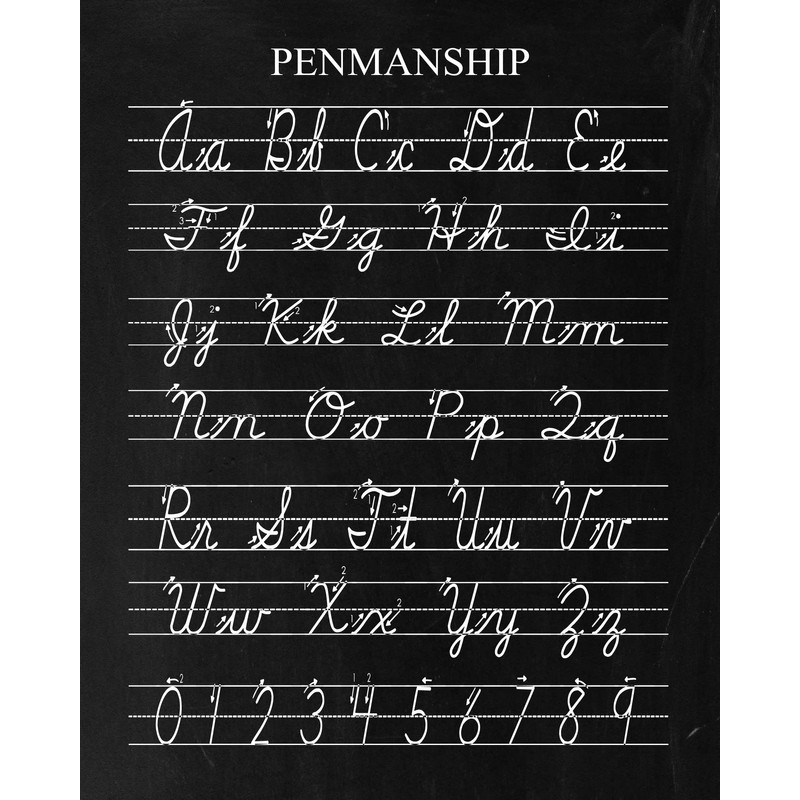 PENMANSHIP
Aa Bb Cc Dd Ee
Ff Gg Hh Ii
Jj Kk Ll Mm
Nn Oo Pp Qq
Rr Ss Tt Uu Vv
Ww Xx Yy Zz
0 1 2 3 4 5 6 7 8 9